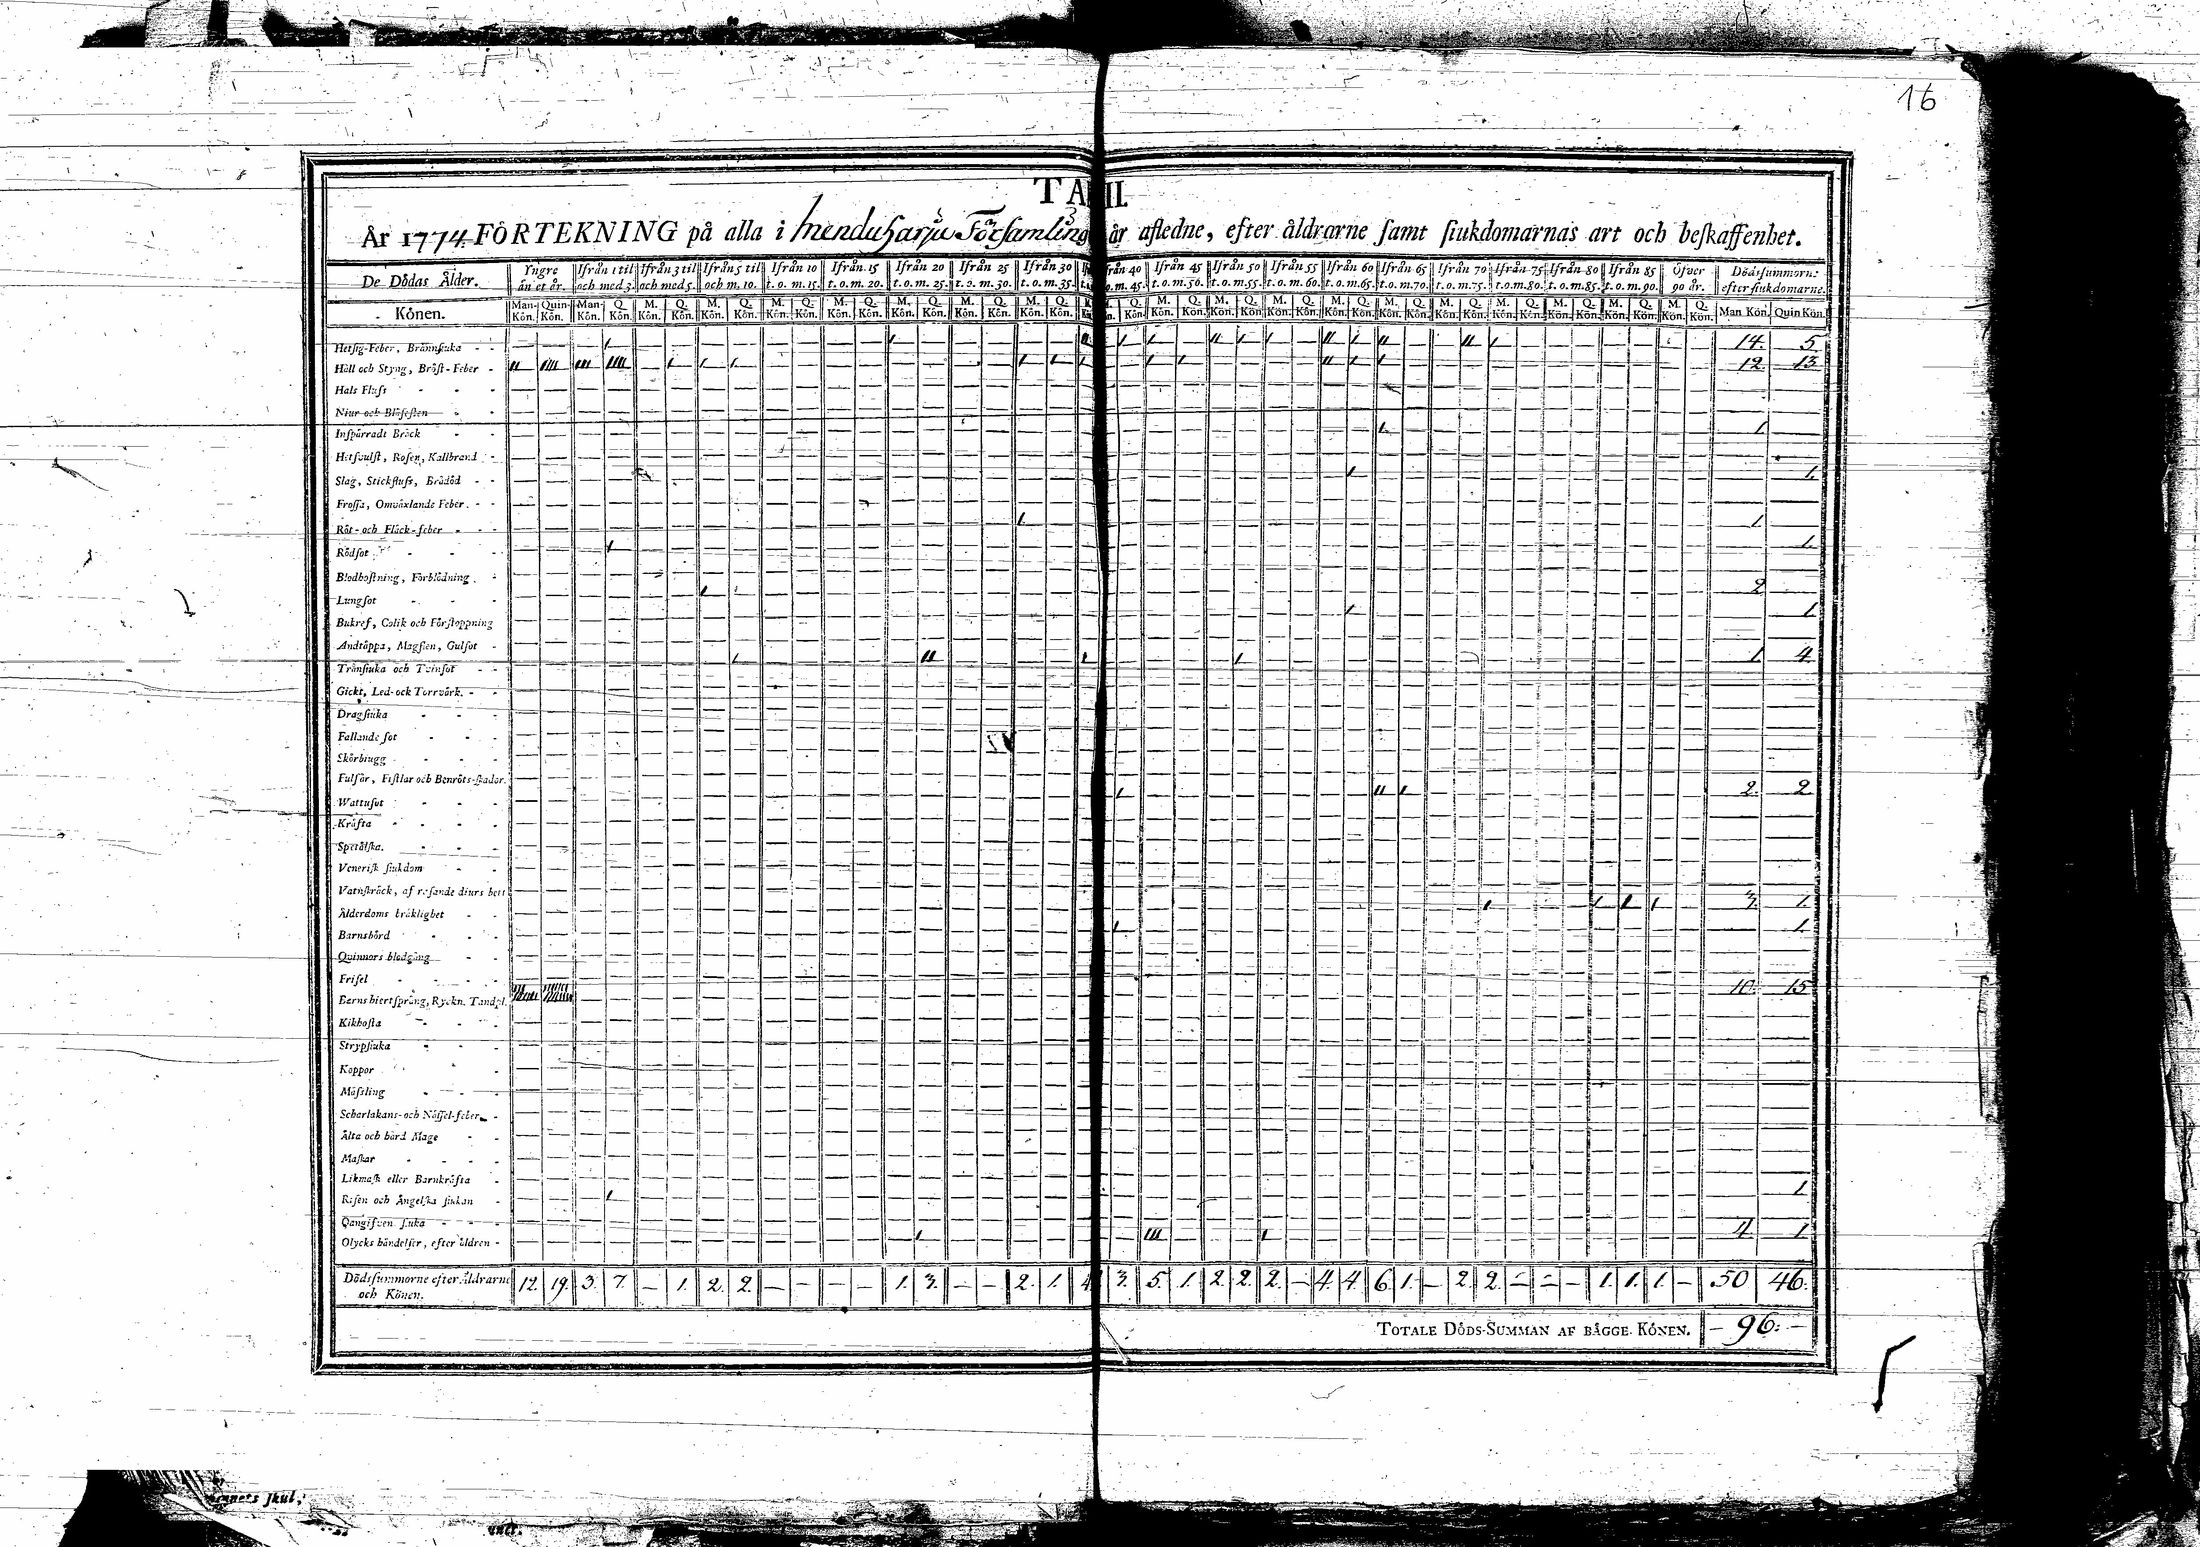 16
TAB III.
År 1774. FÖRTEKNING på alla i Församling år afledne, efter åldrarne samt siukdomarnas art och beskaffenhet.
De Dödas Ålder. Yngre än et år. Ifrån 1 til och med 3. Ifrån 3 til och med 5. Ifrån 5 til och m. 10. Ifrån 10 t.o.m. 15. Ifrån 15 t.o.m. 20. Ifrån 20 t.o.m. 25. Ifrån 25 t.o.m. 30. Ifrån 30 t.o.m. 35. Ifrån 40 t.o.m. 45. Ifrån 45 t.o.m. 50. Ifrån 50 t.o.m. 55. Ifrån 55 t.o.m. 60. Ifrån 60 t.o.m. 65. Ifrån 65 t.o.m. 70. Ifrån 70 t.o.m. 75. Ifrån 75 t.o.m. 80. Ifrån 80 t.o.m. 85. Ifrån 85 t.o.m. 90. Öfver 90 år. Dödssummorne efter siukdomarne.
Könen. Man-Kön. Quin-Kön. Man-Kön. Q. Kön. M. Kön. Q. Kön. M. Kön. Q. Kön. M. Kön. Q. Kön. M. Kön. Q. Kön. M. Kön. Q. Kön. M. Kön. Q. Kön. M. Kön. Q. Kön. Q. Kön. M. Kön. Q. Kön. M. Kön. Q. Kön. M. Kön. Q. Kön. M. Kön. Q. Kön. M. Kön. Q. Kön. M. Kön. Q. Kön. M. Kön. Q. Kön. M. Kön. Q. Kön. M. Kön. Q. Kön. M. Kön. Q. Kön. Man Kön. Quin Kön.
Hetsig-Feber, Brännsiuka 14. 5
Håll och Styng, Bröst-Feber 12. 13
Hals Fluss
Niur och Blåsesten
Inspärradt Bråck 1.
Hetsvulst, Rosen, Kallbrand
Slag, Stickfluss, Brådöd 1.
Frossa, Omväxlande Feber
Röt- och Fläck-feber 1.
Rödsot 1.
Blodhostning, Förblödning
Lungsot 2
Bukref, Colik och Förstoppning 1.
Andtäppa, Magsien, Gulsot
Trånsiuka och Tvinsot 1. 4.
Gickt, Led- och Torrvärk.
Dragsiuka
Fallande sot
Skörbiugg
Fulsår, Fistlar och Benröts-skador.
Wattusot 2. 2
Kräfta
Spetälska.
Venerisk siukdom
Vatnskräck, af rasande diurs bett
Ålderdoms bräklighet 3. 1.
Barnsbörd 1.
Quinnors blodgång
Frisel
Barns hiertsprång, Ryckn. Tandsl. 10. 15
Kikhosta
Strypsiuka
Koppor
Mässling
Scharlakans- och Nässel-feber
Älta och hård Mage
Maskar
Likmask eller Barnkräfta
Risen och Ångelska siukan 1.
Oangifven siuka
Olycks händelser, efter åldren 4. 1.
Dödssummorne efter Åldrarne och Könen. 12. 19. 3. 7. — 1. 2. 2. — — — — 1. 3. — — 2. 1. 4. 3. 5. 1. 2. 2. 2. — 4. 4. 6. 1. — 2. 2. — — — 1. 1. 1. — 50 46.
TOTALE DÖDS-SUMMAN AF BÄGGE KÖNEN. — 96: —